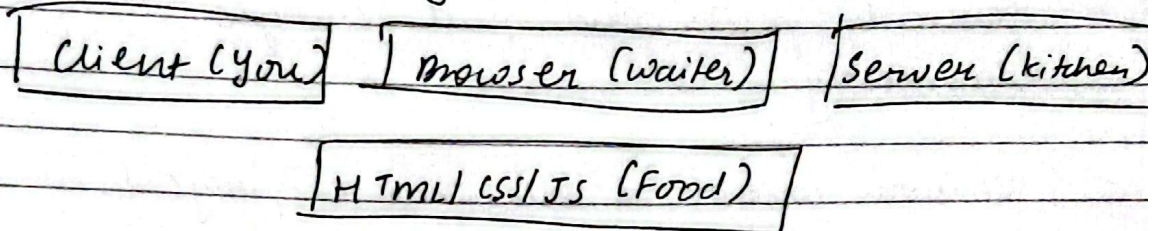 Client (you) Browser (waiter) Server (kitchen)
HTML/CSS/JS (Food)